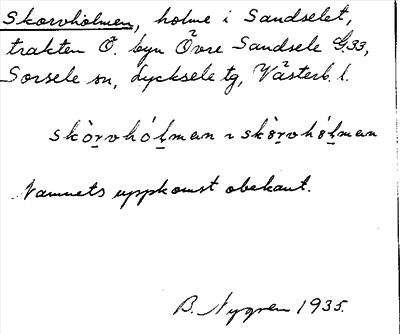 Skorvholmen, holme i Sandselet,
trakten Ö. byn Övre Sandsele G:33,
Sorsele sn, Lycksele tg, Västerb. l.
skòr̲vhól̲man ~ skòr̲vhól̲man
Namnets uppkomst obekant.
B. Nygren 1935.